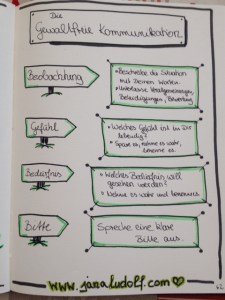 Die
Gewaltfreie Kommunikation
Beobachtung
• Beschreibe die Situation
mit Deinen Worten
• Unterlasse Verallgemeinerungen,
Beleidigungen, Bewertung
Gefühl
• Welches Gefühl ist in Dir
lebendig?
• Spüre es, nehme es wahr,
benenne es.
Bedürfnis
• Welches Bedürfnis will
gesehen werden?
• Nehme es wahr und benenne es.
Bitte
Spreche eine klare
Bitte aus.
www.janaludolf.com